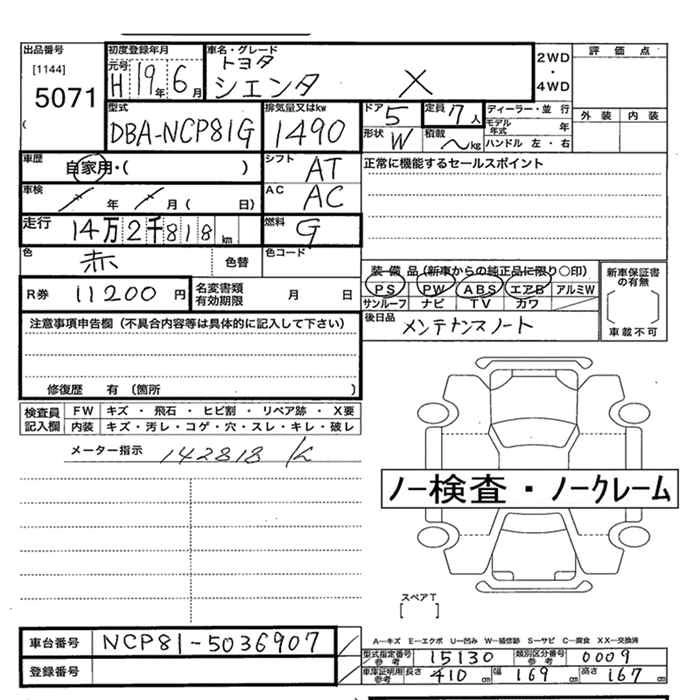 出品番号
[1144]
5071
(
初度登録年月
元号
H 19年 6月
車名・グレード
トヨタ
シエンタ X
2WD
・
4WD
評価点
外装 内装
型式
DBA-NCP81G
排気量又はkw
1490
ドア
5
定員
7人
形状
W
積載
〜kg
ディーラー・並行
モデル年式 年
ハンドル 左・右
車歴
自家用・( )
シフト
AT
正常に機能するセールスポイント
車検
年 月 ( 日)
AC
AC
走行
14万2千818km
燃料
G
色
赤
色替
色コード
装備品(新車からの純正品に限り○印)
PS PW ABS エアB アルミW
サンルーフ ナビ TV カワ
新車保証書の有無
車載不可
R券
11200円
名変書類有効期限
月 日
後日品
メンテナンスノート
注意事項申告欄(不具合内容等は具体的に記入して下さい)
修復歴 有 (箇所 )
検査員記入欄
FW キズ・飛石・ヒビ割・リペア跡・X要
内装 キズ・汚レ・コゲ・穴・スレ・キレ・破レ
メーター指示
142818 K
ノー検査・ノークレーム
スペアT
[ ]
車台番号
NCP81-5036907
登録番号
A―キズ E―エクボ U―凹み W―補修跡 S―サビ C―腐食 XX―交換済
型式指定番号参考
15130
類別区分番号参考
0009
車庫証明用参考
長さ 410 cm 幅 169 cm 高さ 167 cm